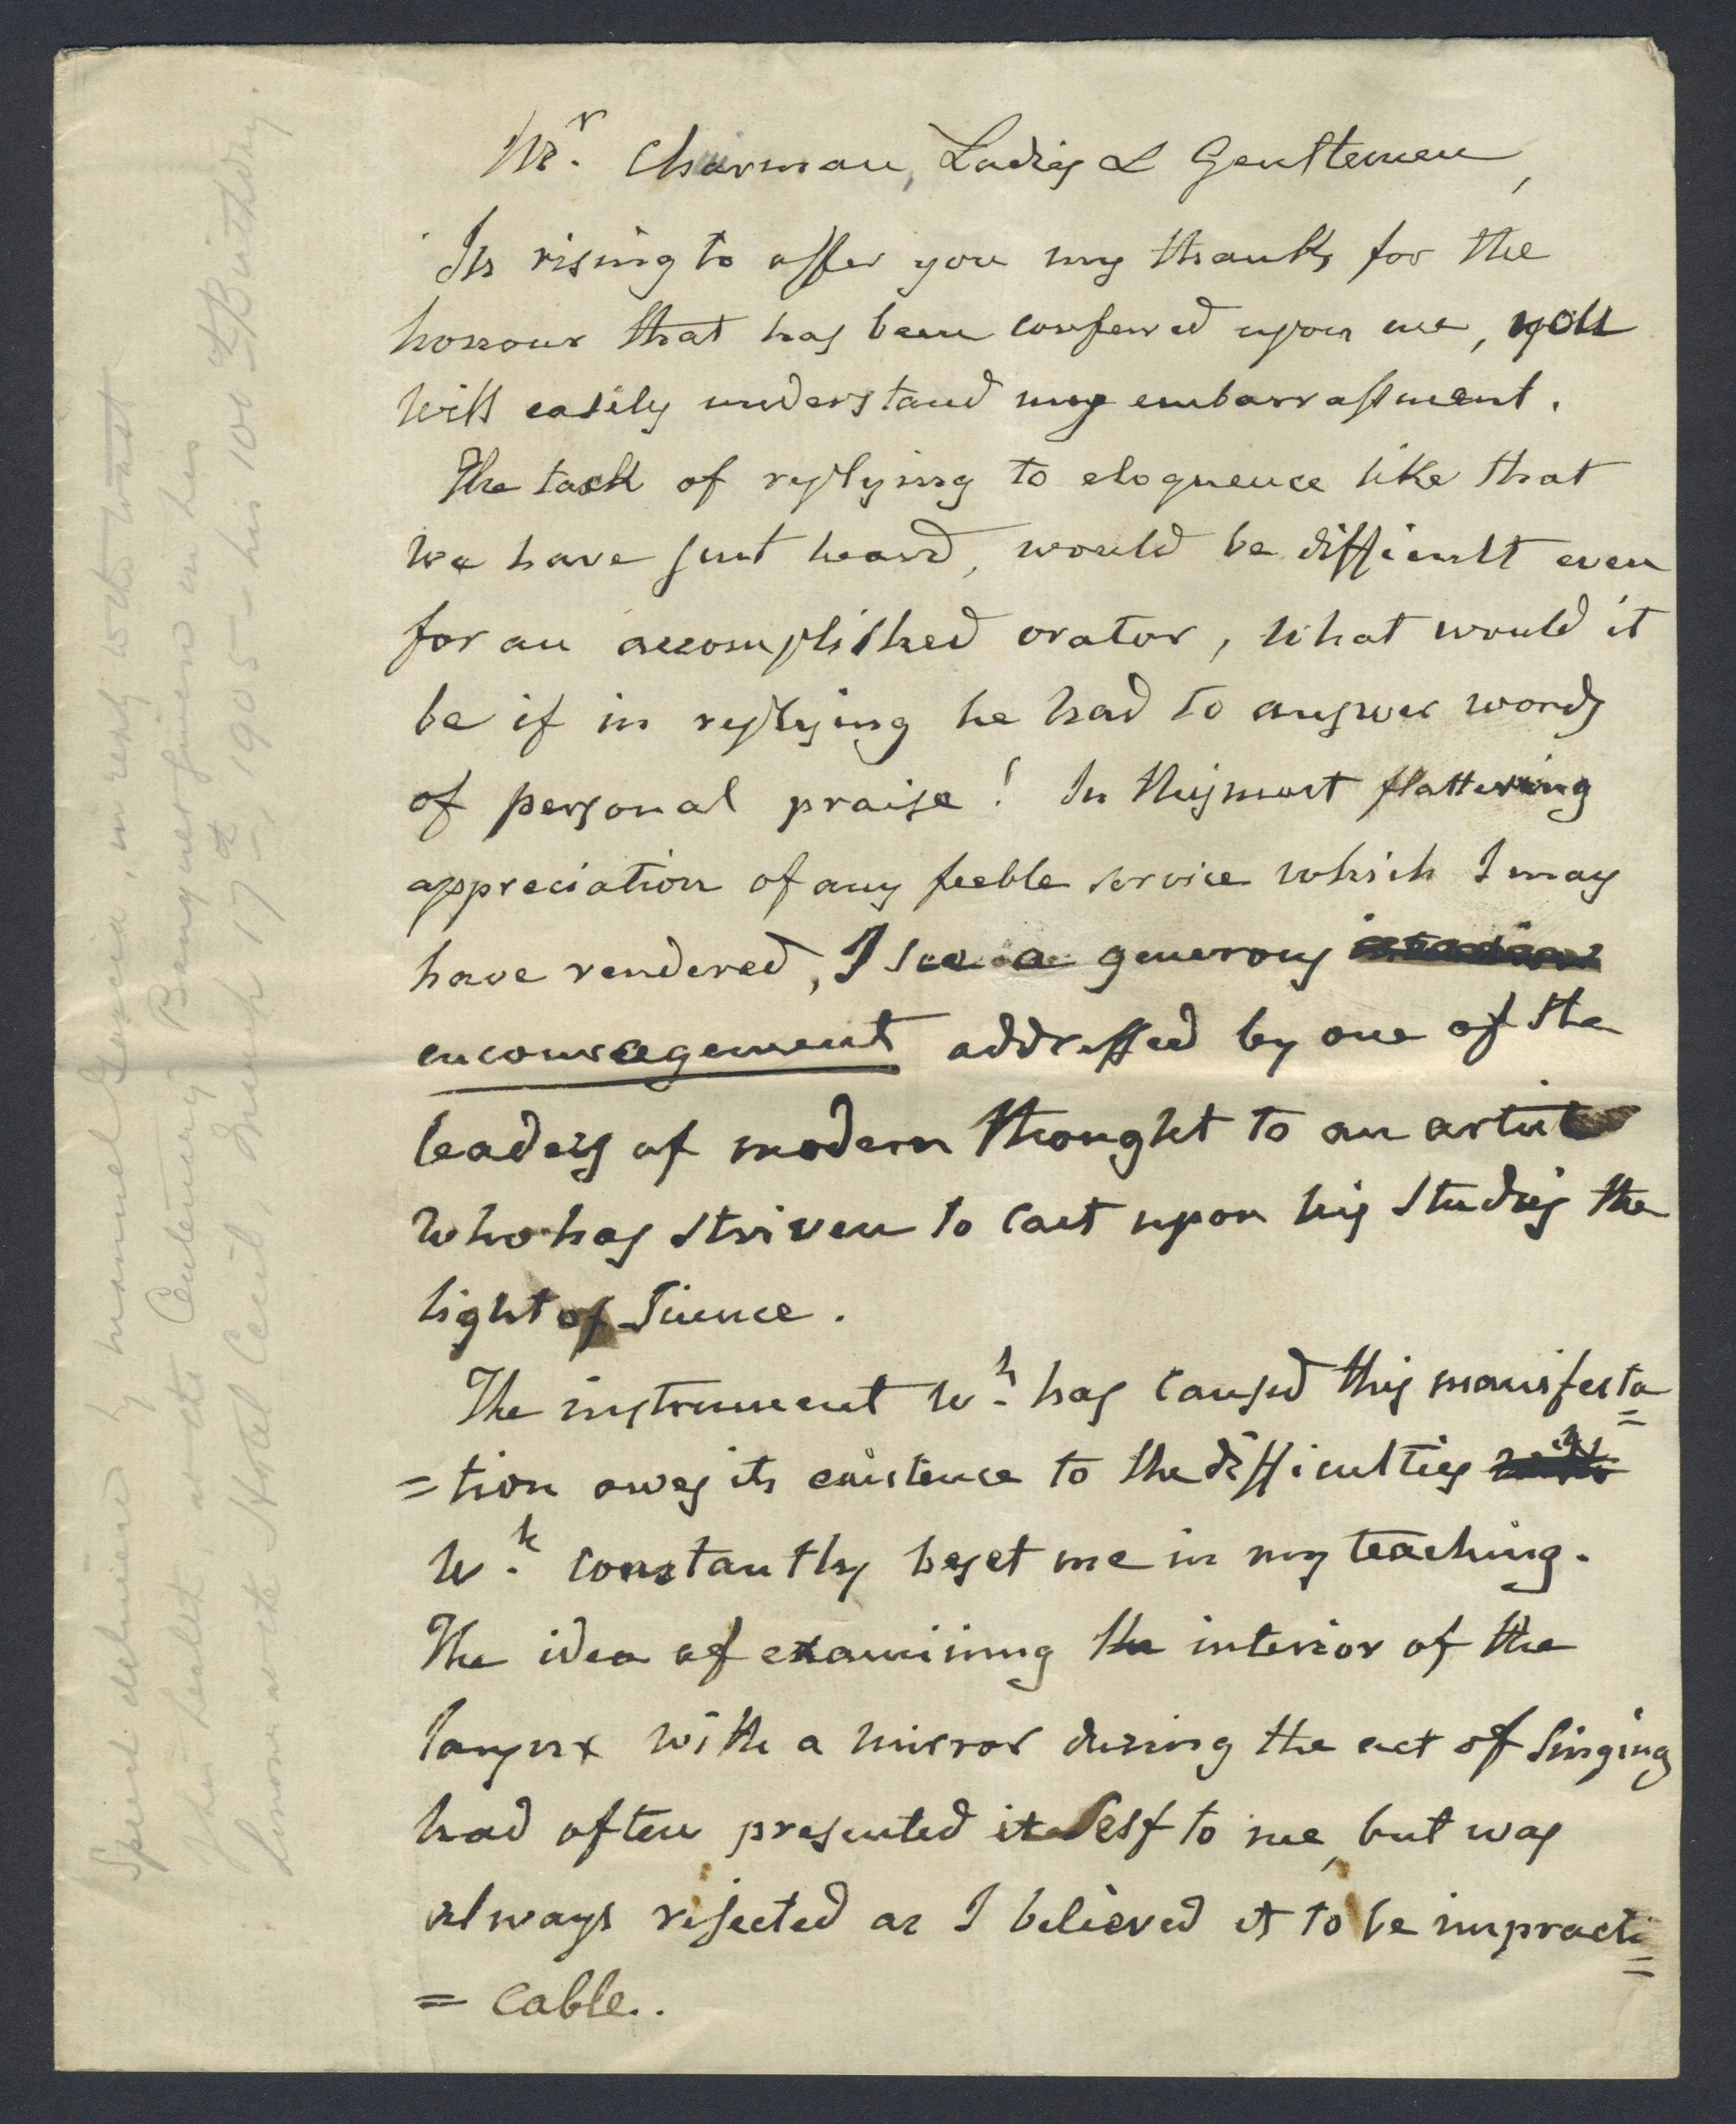 Mr. Chairman, Ladies & Gentlemen,
In rising to offer you my thanks for the
honour that has been conferred upon me, you
will easily understand my embarrassment.
The task of replying to eloquence like that
we have just heard, would be difficult even
for an accomplished orator, what would it
be if in replying he had to answer words
of personal praise! In this most flattering
appreciation of any feeble service which I may
have rendered, I see a generous
encouragement addressed by one of the
leaders of modern thought to an artist
who has striven to cast upon his studies the
light of Sience.
The instrument wh. has caused this manifesta
=tion owes its existence to the difficulties
wh. constantly beset me in my teaching.
The idea of examining the interior of the
larynx with a mirror during the act of singing
had often presented itself to me, but was
always rejected as I believed it to be impracti
=cable..
Speech delivered by Manuel Garcia, in reply to the toast
of his health at the Centenary Banquet given in his
honor at the Hotel Cecil, March 17th 1905 - his 100th Birthday.